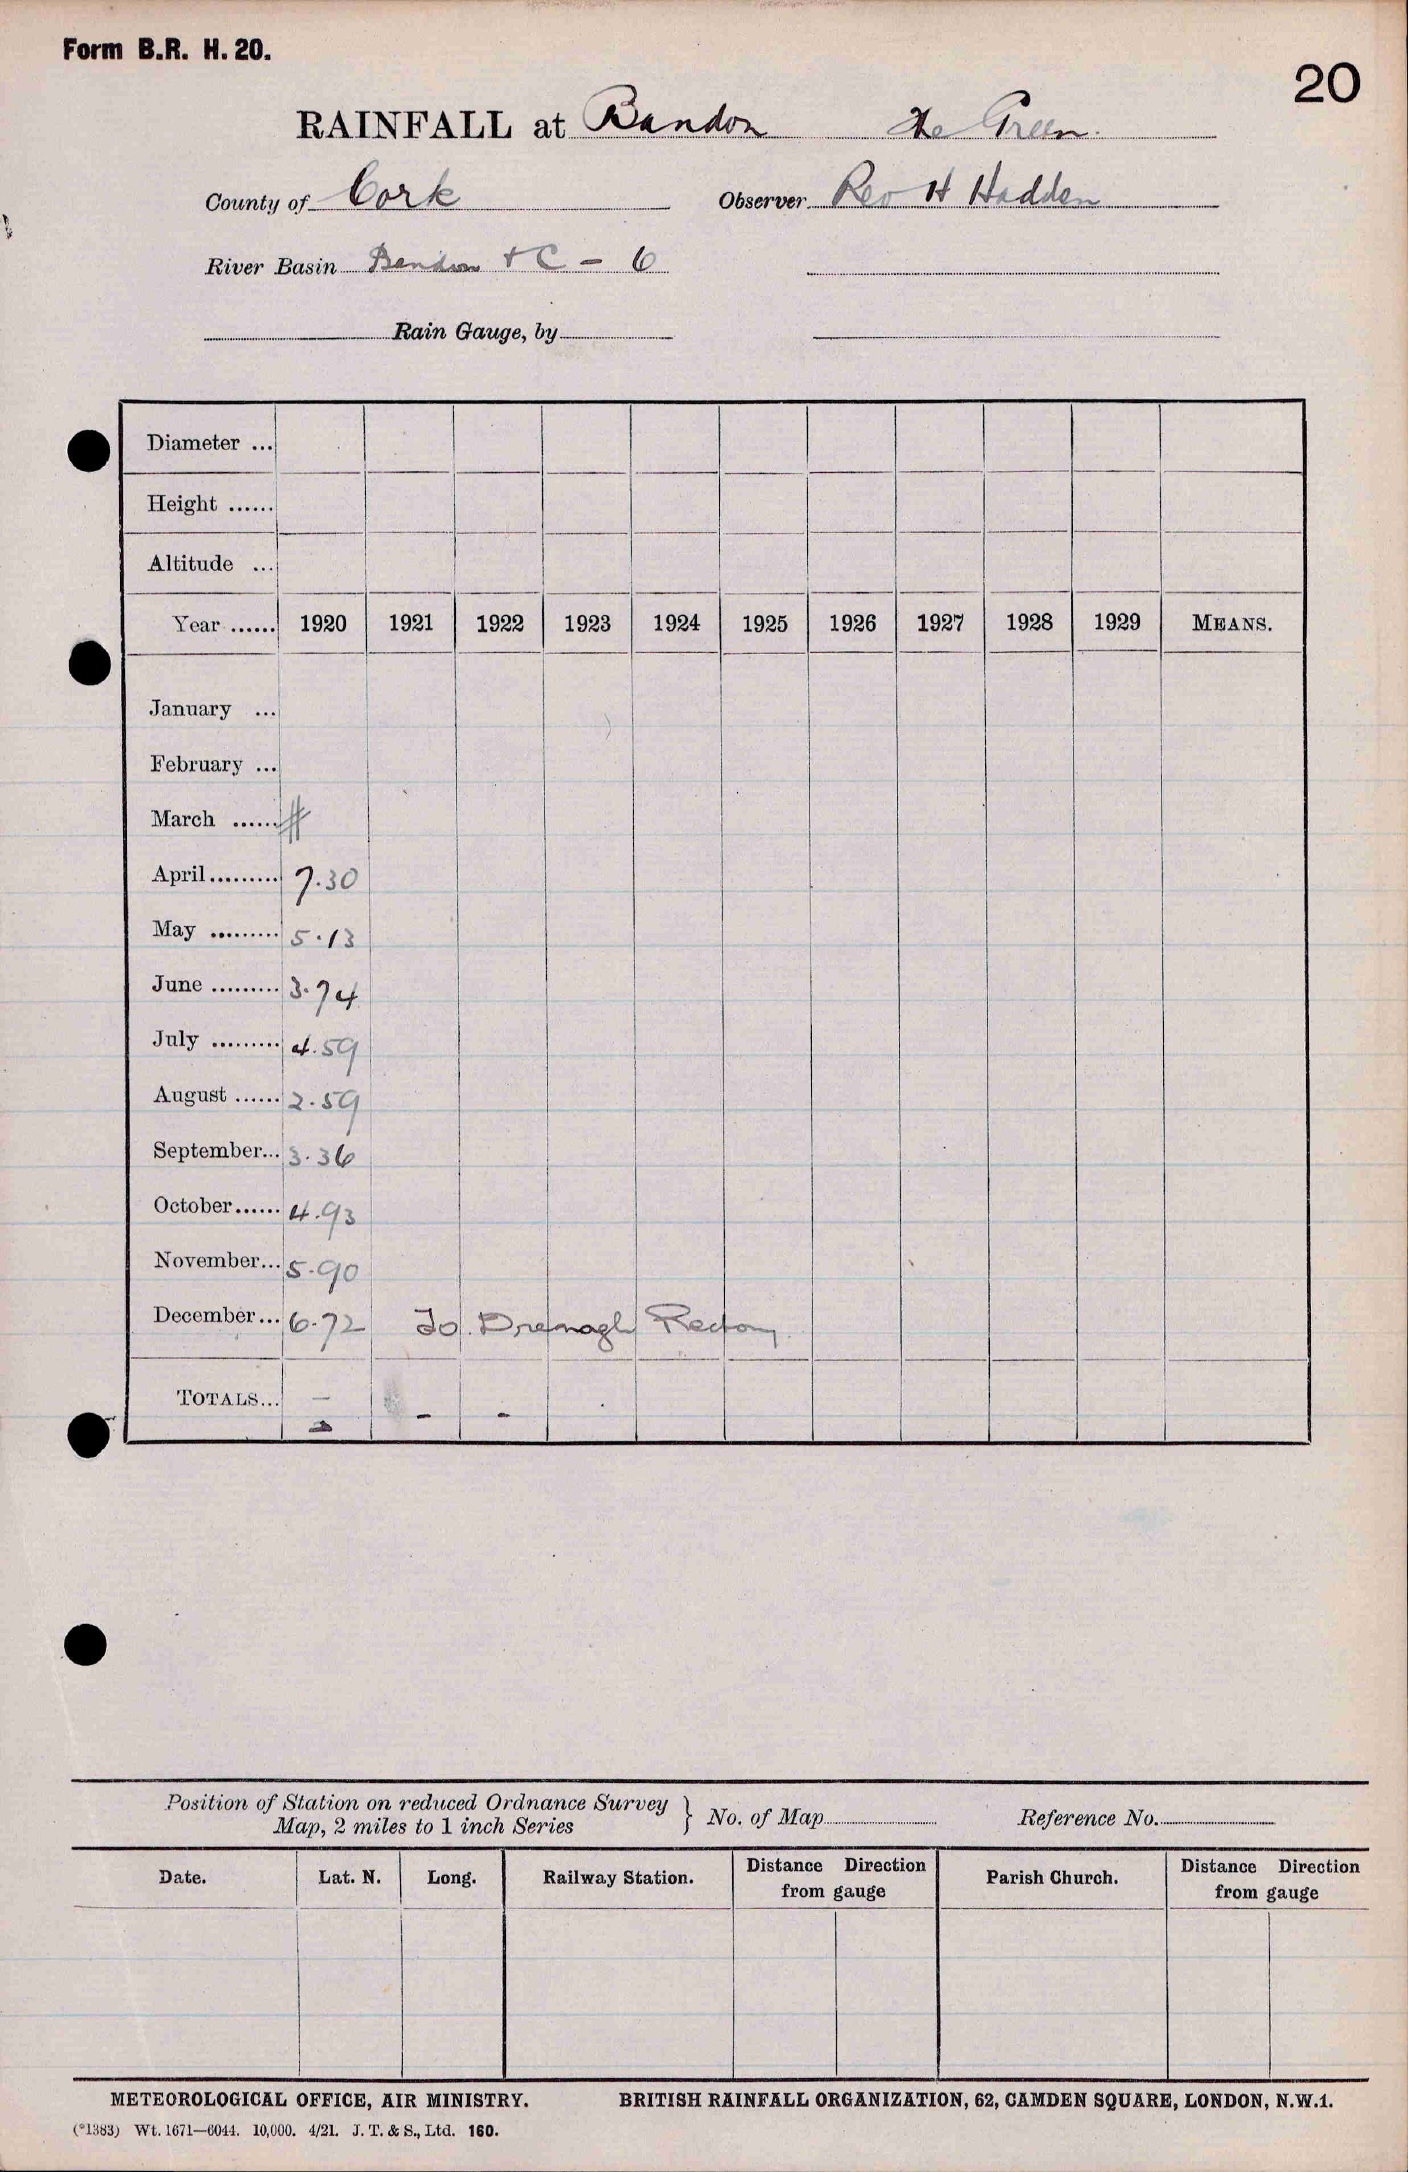 Form B.R. H. 20.
20
RAINFALL at Bandon The Green.
County of Cork Observer Rev H Hadden
River Basin Bandon + C - 6
Rain Gauge, by
Diameter ...
Height ......
Altitude ...
Year ...... 1920 1921 1922 1923 1924 1925 1926 1927 1928 1929 MEANS.
January ...
February ...
March ...... #
April ......... 7.30
May ......... 5.13
June ......... 3.74
July ......... 4.59
August ...... 2.59
September... 3.36
October...... 4.93
November... 5.90
December... 6.72 To Drenagh Rectory
TOTALS... — - -
Position of Station on reduced Ordnance Survey
Map, 2 miles to 1 inch Series } No. of Map Reference No.
Date. Lat. N. Long. Railway Station. Distance Direction from gauge Parish Church. Distance Direction from gauge
METEOROLOGICAL OFFICE, AIR MINISTRY. BRITISH RAINFALL ORGANIZATION, 62, CAMDEN SQUARE, LONDON, N.W.1.
(*1383) Wt. 1671—6044. 10,000. 4/21. J. T. & S., Ltd. 160.